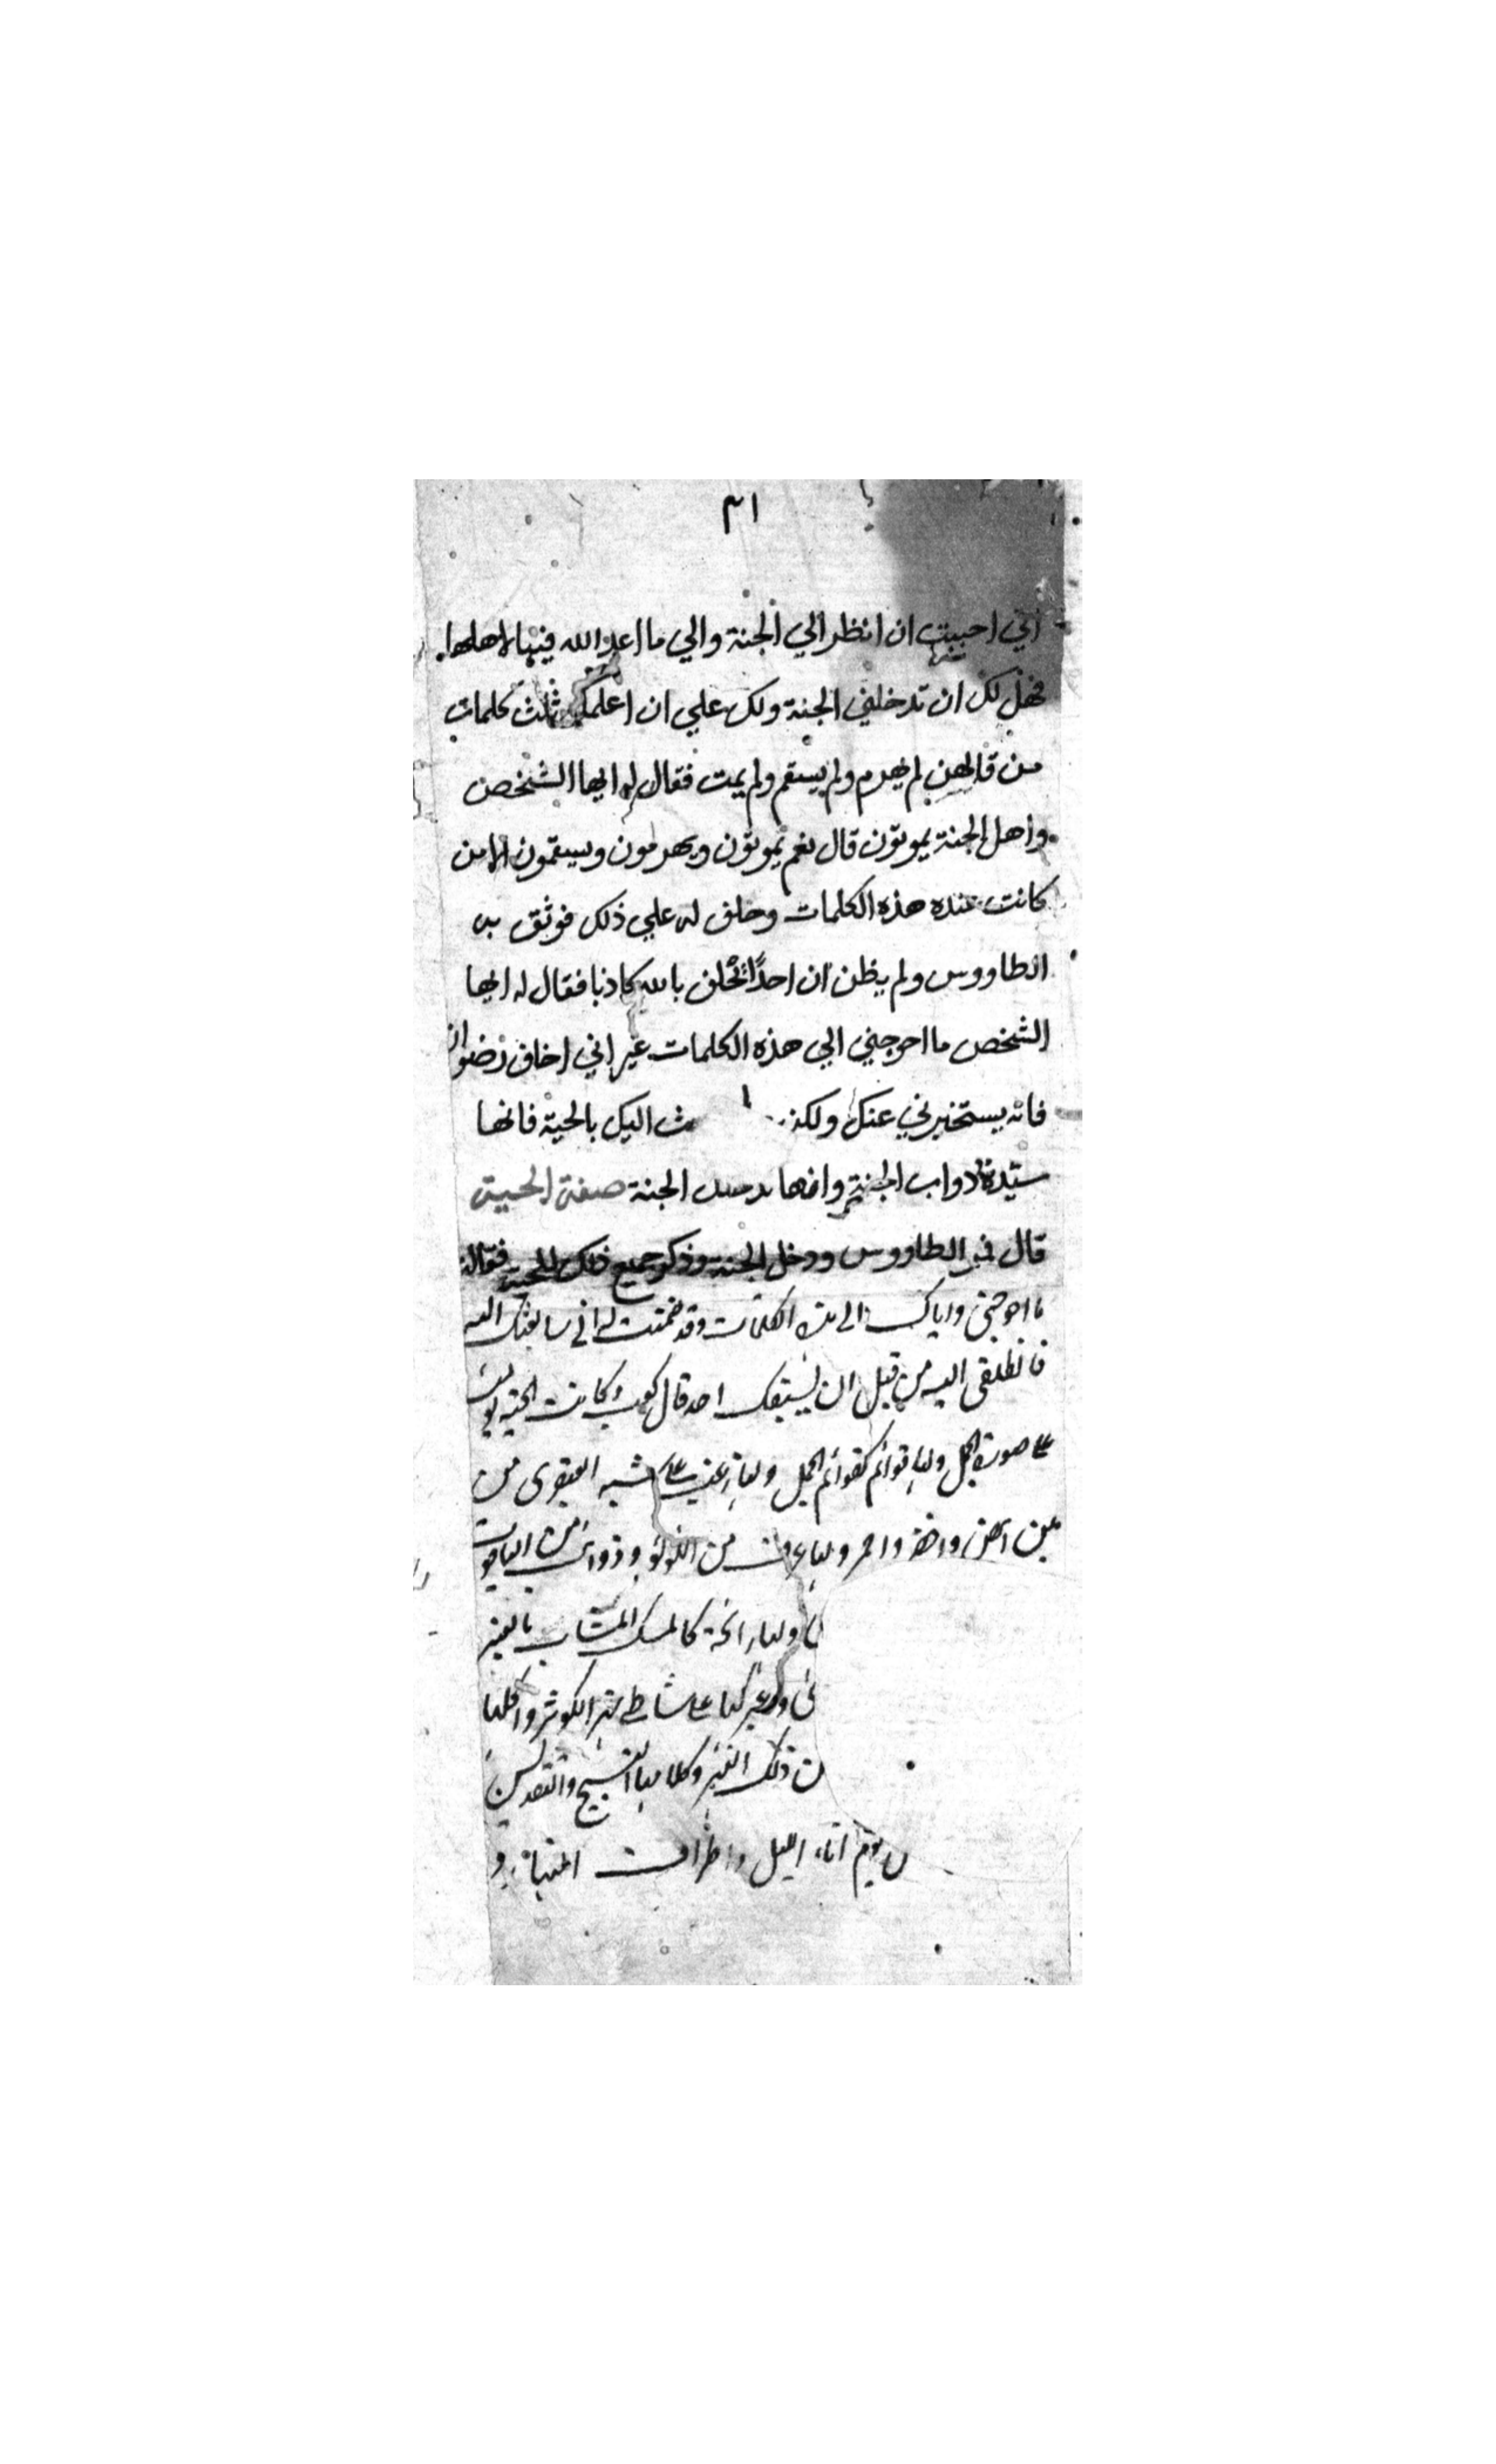 ٣١
اني احببت ان انظر الي الجنة والي ما اعد الله فيها لاهلها
فهل لك ان تدخلني الجنة ولك علي ان اعلمك ثلث كلمات
من قالهن لم يهرم ولم يسقم ولم يمت فقال له ايها الشخص
واهل الجنة يموتون قال نعم يموتون ويهرمون ويسقمون الا من
كانت عنده هذه الكلمات وحلف له علي ذلك فوثق به
الطاووس ولم يظن ان احدًا يحلف بالله كاذبا فقال له ايها
الشخص ما احوجني الي هذه الكلمات غير اني اخاف رضوان
فانه يستخبرني عنك ولكن اليك بالحية فانها
سيدة دواب الجنة وانها الجنة صفة الحية
قال الطاووس ودخل الجنة وذكر جميع ذلك للحية فقالت
ما احوجني واياك الى هذه الكلمات وقد ضمنت له اني سابعثك اليه
فانطلقي اليه من قبل ان يسبقك احد قال كعب وكانت الحية
على صورة الجمل ولها قوائم كقوائم الجمل ولها شبه العبقري من
بين ابيض واخضر واحمر ولها عرف من اللؤلؤ وذوائب من الياقوت
ولها رائحة كالمسك المشاب بالعنبر
على شاطئ نهر الكوثر واكلها
ذلك وكلامها التسبيح والتقديس
اناء الليل واطراف النهار و